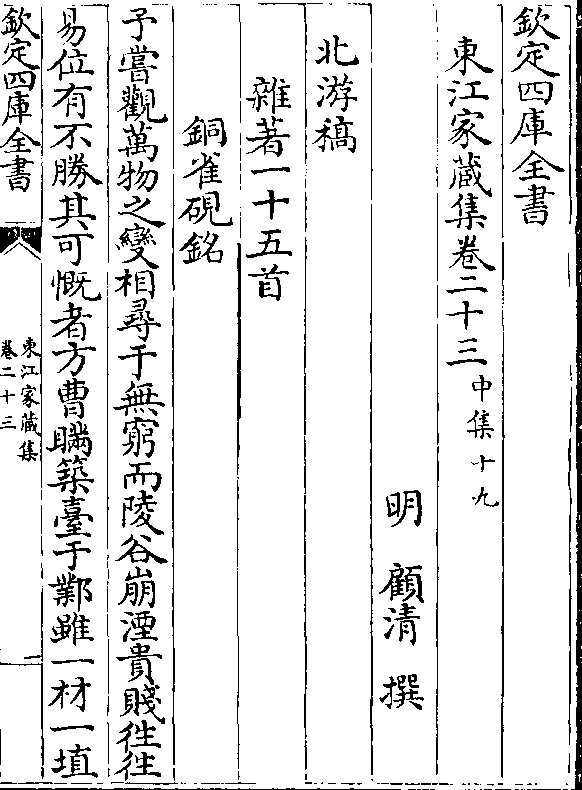 欽定四庫全書
東江家藏集卷二十三 中集十九
明 顧清 撰
北游稿
雜著一十五首
銅雀硯銘
予嘗觀萬物之變相尋于無窮而陵谷崩湮貴賤徃徃
易位有不勝其可慨者方曹瞞築臺于鄴雖一材一埴
欽定四庫全書
東江家藏集
卷二十三